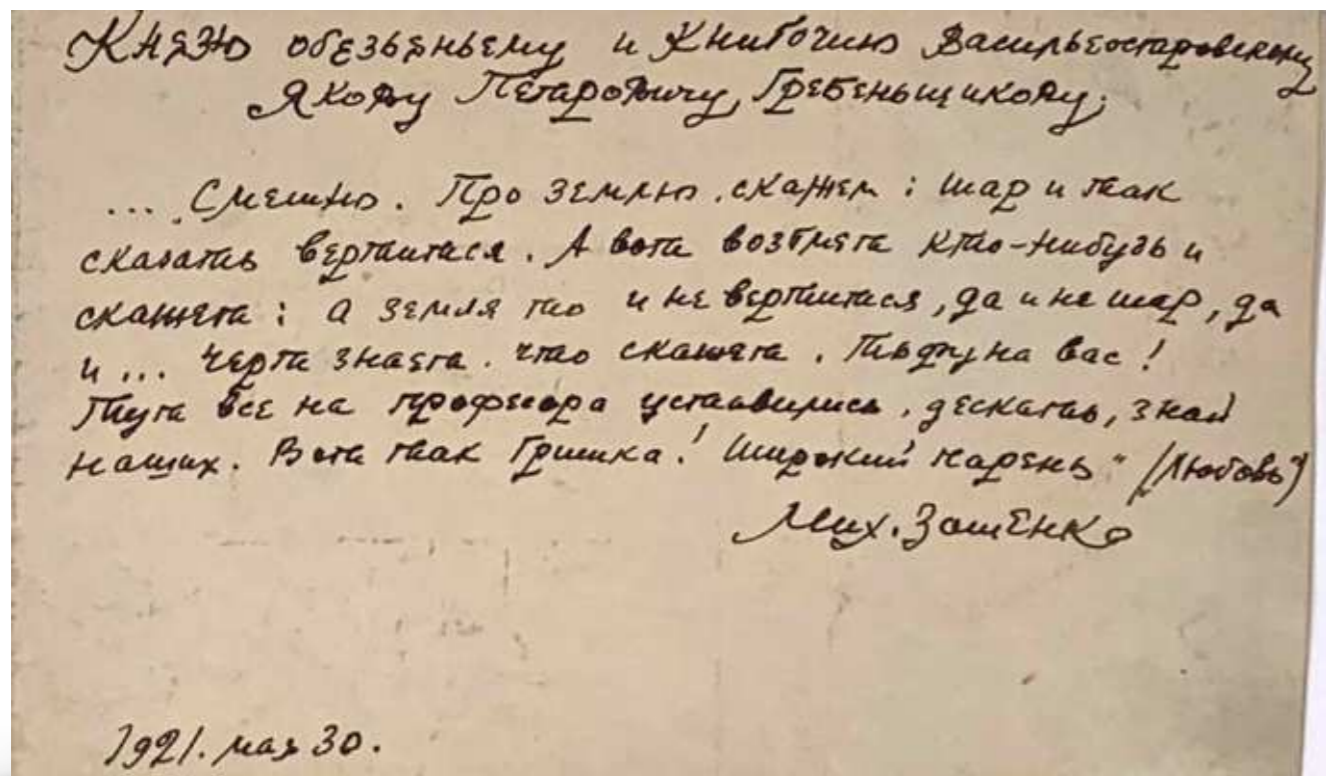 Князю обезьяньему и Книгочию Васильеостровскому
Якову Петровичу Гребеньщикову;
... Смешно. Про землю, скажем: шар и так
сказать вертится. А вот возьмет кто-нибудь и
скажет: а земля то и не вертится, да и не шар, да
и... черт знает. что скажет. Тьфу на вас!
Тут все на професора уставились, дескать, знай
наших. Вот так Гришка! Широкий парень" (Любовь")
Мих. Зощенко
1921. мая 30.